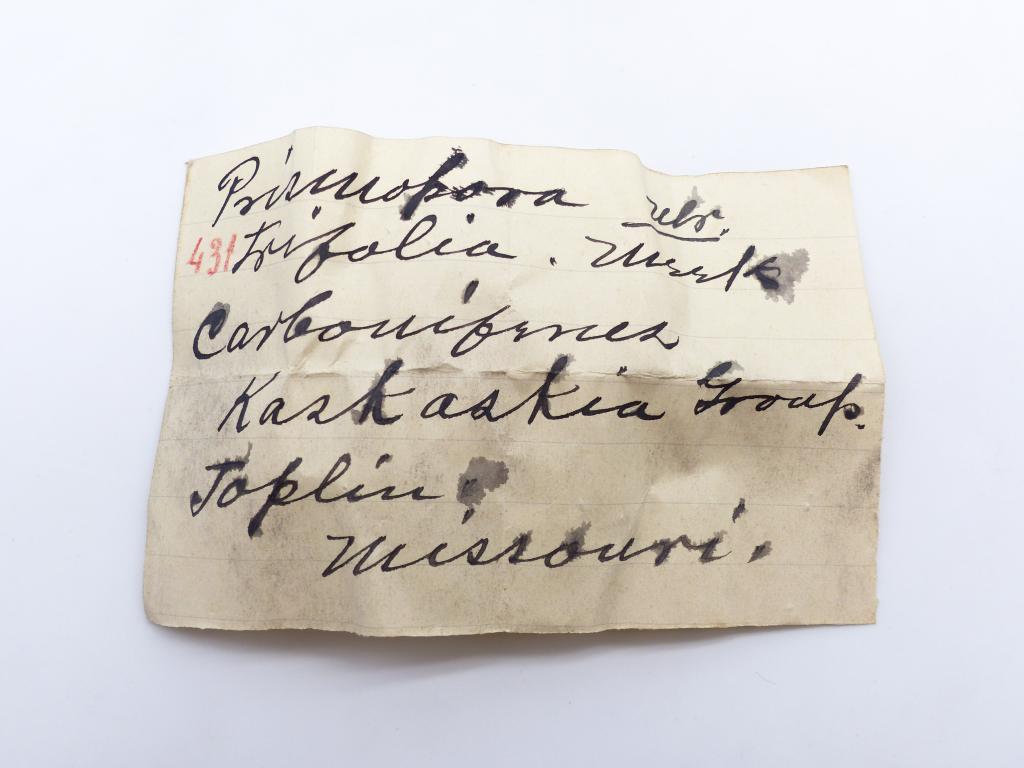 Prismopora
431 Trifolia. Meek
Carboniferes
Kaskaskia Group.
Joplin,
Missouri.